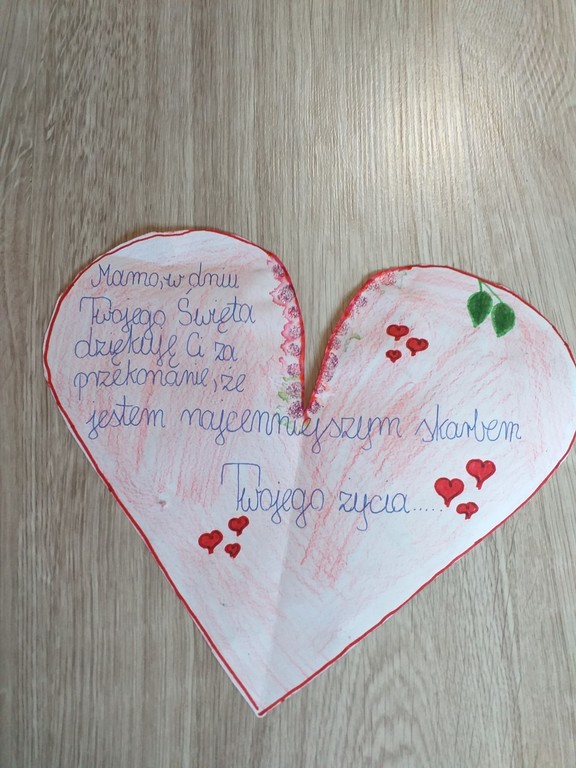 Mamo, w dniu
Twojego Święta
dziękuję Ci za
przekonanie, że
jestem najcenniejszym skarbem
Twojego życia.....